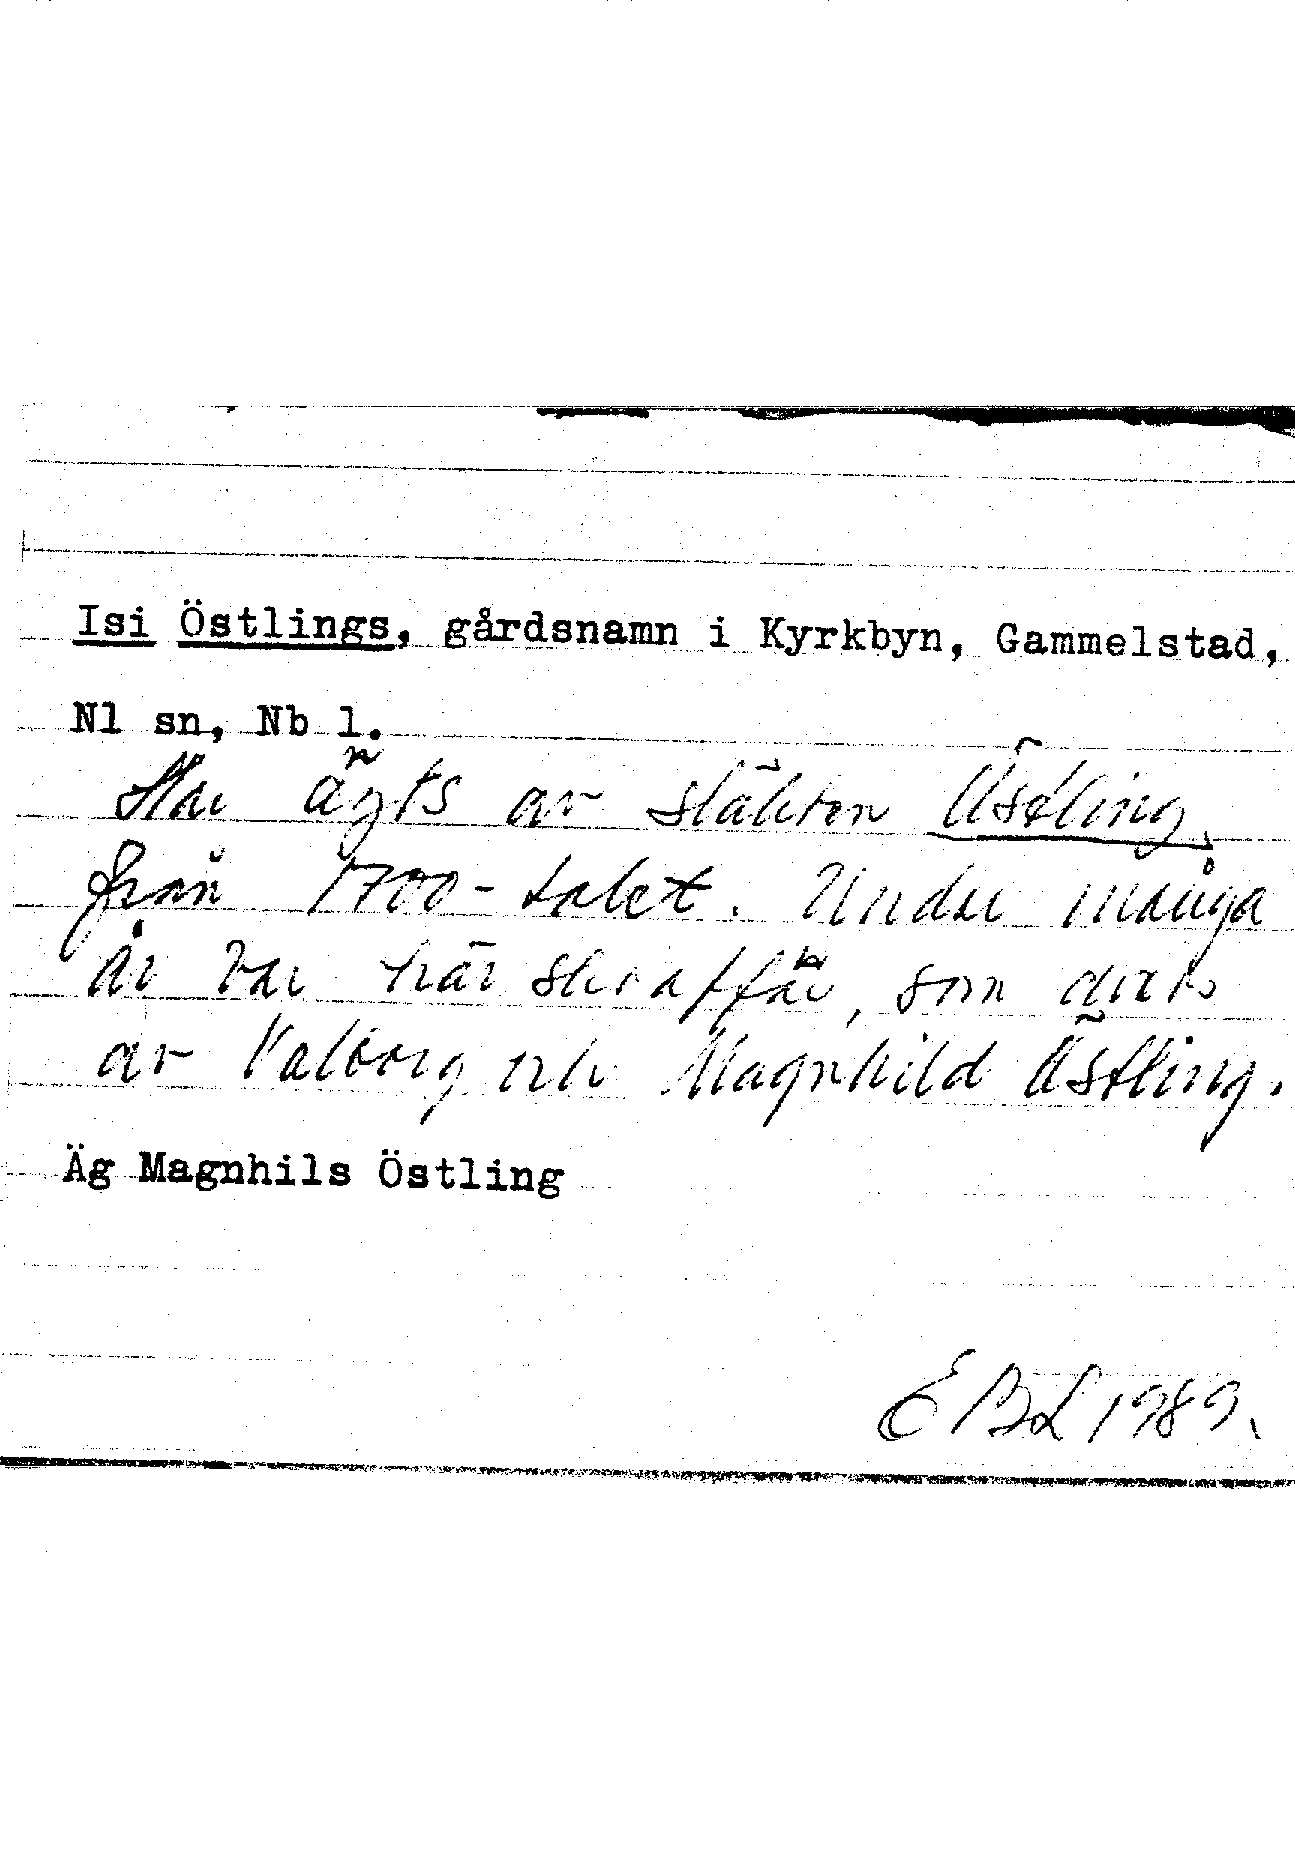 Isi Östlings, gårdsnamn i Kyrkbyn, Gammelstad,
Nl sn, Nb l.
Har ägts av släkten Östling
från 1700-talet. Under många
år var här skoaffär, som drivits
av Valborg och Magnhild Östling.
Äg Magnhils Östling
EBL 1989.